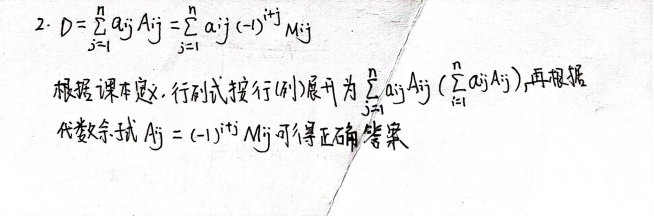 2. D = ∑_{j=1}^{n} a_{ij} A_{ij} = ∑_{j=1}^{n} a_{ij} (-1)^{i+j} M_{ij}
根据课本定义,行列式按行(列)展开为 ∑_{j=1}^{n} a_{ij} A_{ij} (∑_{i=1}^{n} a_{ij} A_{ij}),再根据
代数余子式 A_{ij} = (-1)^{i+j} M_{ij} 可得正确答案